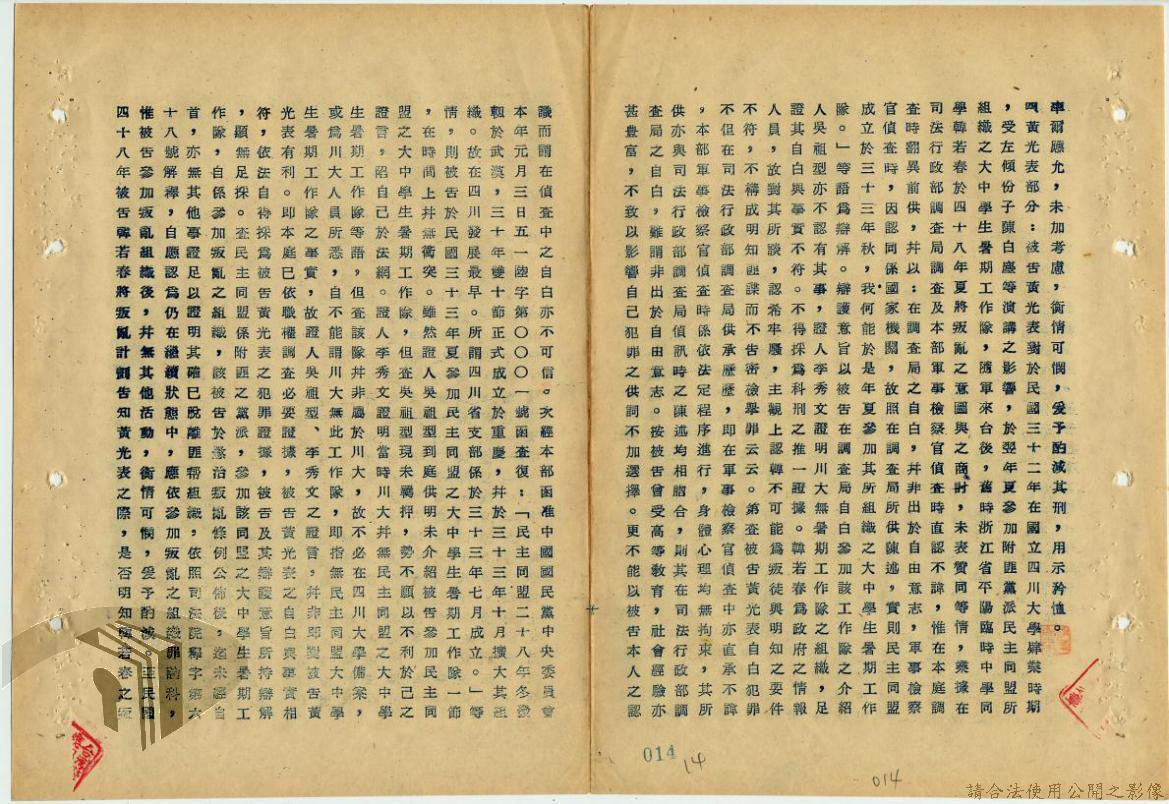 率爾應允，未加考慮，衡情可憫，爰予酌減其刑，用示矜恤。
四黃光表部分：被告黃光表對於民國三十二年在國立四川大學肄業時期
，受左傾份子陳白塵等演講之影響，於翌年夏參加附匪黨派民主同盟所
組織之大中學生暑期工作隊，隨軍來台後，舊時浙江省平陽臨時中學同
學韓若春於四十八年夏將叛亂之意圖與之商討，未表贊同等情，業據在
司法行政部調查局調查及本部軍事檢察官偵查時直認不諱，惟在本庭調
查時翻異前供，并以：在調查局之自白，并非出於自由意志，軍事檢察
官偵查時，因認同係國家機關，故照在調查局所供陳述，實則民主同盟
成立於三十三年秋，我何能於是年夏參加其所組織之大中學生暑期工作
隊。」等語為辯解。辯護意旨以被告在調查局自白參加該工作隊之介紹
人吳祖型亦不認有其事，證人李秀文證明川大無暑期工作隊之組織，足
證其自白與事實不符。不得採為科刑之唯一證據。韓若春為政府之情報
人員，故對其所談，認希牢騷，主觀上認韓不可能為叛徒與明知之要件
不符，不構成明知匪諜而不告密檢舉罪云云。第查被告黃光表自白犯罪
不但在司法行政部調查局供承歷歷，即在軍事檢察官偵查中亦直承不諱
，本部軍事檢察官偵查時係依法定程序進行，身體心理均無拘束，其所
供亦與司法行政部調查局偵訊時之陳述均相脗合，則其在司法行政部調
查局之自白，難謂非出於自由意志。按被告曾受高等教育，社會經驗亦
甚豊富，不致以影響自己犯罪之供詞不加選擇。更不能以被告本人之認
識而謂在偵查中之自白亦不可信。次經本部函准中國國民黨中央委員會
本年元月三日五一陸字第〇〇〇一號函查復：「民主同盟二十八年冬發
軔於武漢，三十年雙十節正式成立於重慶，并於三十三年十月擴大其組
織。故在四川發展最早。所謂四川省支部係於三十三年七月成立。」等
情，則被告於民國三十三年夏參加民主同盟之大中學生暑期工作隊一節
，在時間上并無衝突。雖然證人吳祖型到庭供明未介紹被告參加民主同
盟之大中學生暑期工作隊，但查吳祖型現未羈押，勢不願以不利於己之
證言，陷自己於法網。證人李秀文證明當時川大并無民主同盟之大中學
生暑期工作隊等語，但查該隊并非屬於川大，故不必在四川大學備案，
或為川大人員所悉，自不能謂川大無此工作隊，即指無民主同盟大中學
生暑期工作隊之事實，故證人吳祖型、李秀文之證言，并非即對被告黃
光表有利。即本庭已依職權調查必要證據，被告黃光表之自白與事實相
符，依法自得採為被告黃光表之犯罪證據，被告及其辯護意旨所持辯解
，顯無足採。查民主同盟係附匪之黨派，參加該同盟之大中學生暑期工
作隊，自係參加叛亂之組織，該被告於懲治叛亂條例公佈後，迄未經自
首，亦無其他事證足以證明其確已脫離匪幫組織，依照司法院釋字第六
十八號解釋，自應認為仍在繼續狀態中，應依參加叛亂之組織罪論科，
惟被告參加叛亂組織後，并無其他活動，衡情可憫，爰予酌減。至民國
四十八年被告韓若春將叛亂計劃告知黃光表之際，是否明知韓若春之叛
014
14
014
請合法使用公開之影像